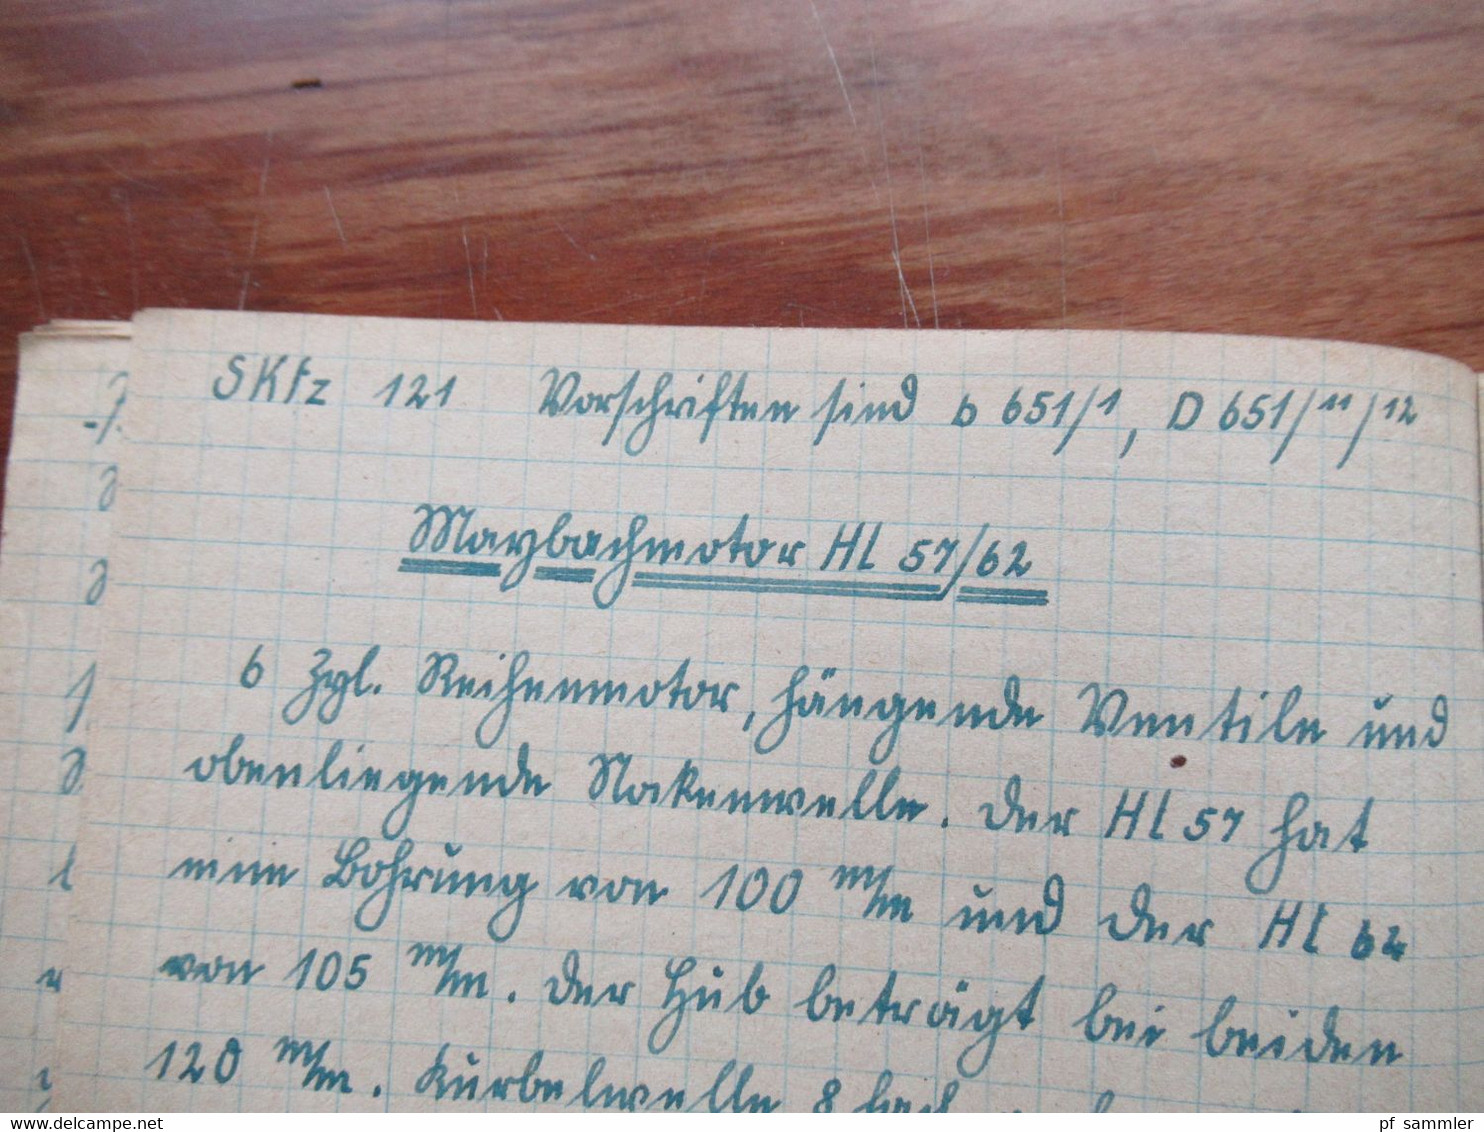 SKfz 121 Vorschriften sind D 651/1, D 651/11/12
Maybachmotor Hl 57/62
6 Zyl. Reihenmotor, hängende Ventile und
obenliegende Nokenwelle. Der Hl 57 hat
eine Bohrung von 100 m/m und der Hl 62
von 105 m/m. Der Hub beträgt bei beiden
120 m/m. Kurbelwelle 8 fach
delcampe.net
pf_sammler